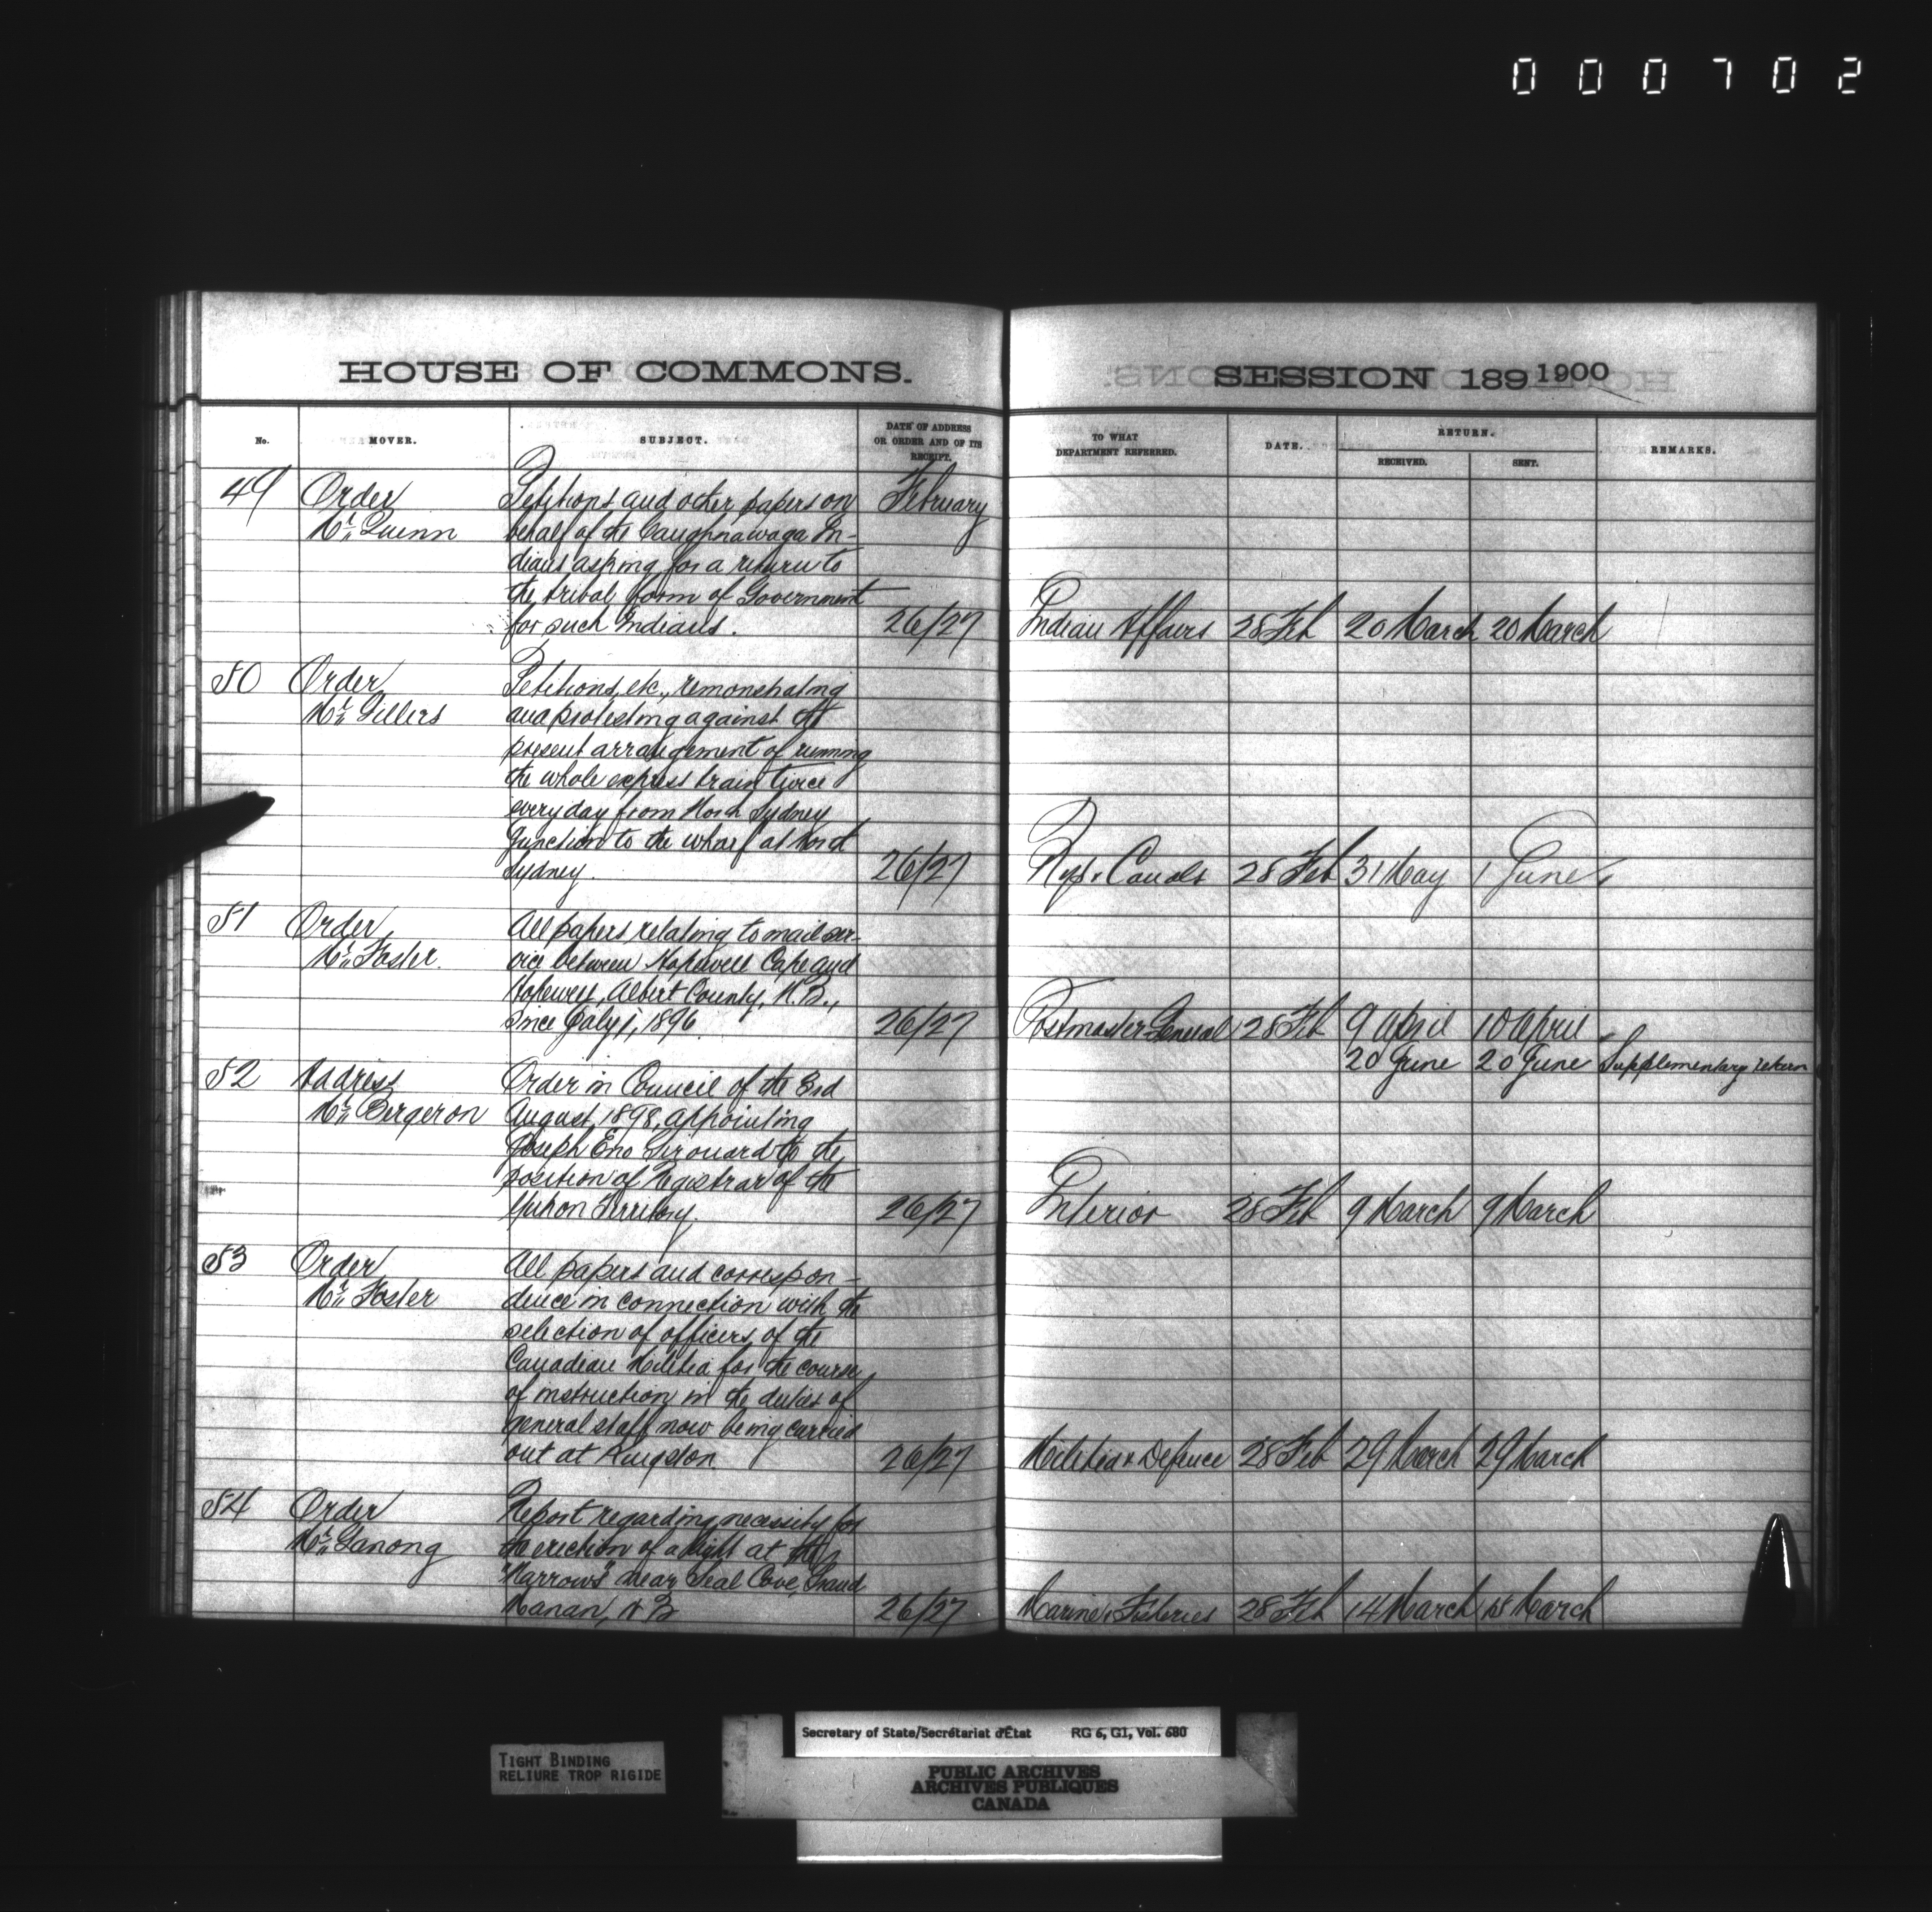 000702
HOUSE OF COMMONS.
No.
MOVER.
SUBJECT.
DATE OF ADDRESS
OR ORDER AND OF ITS
RECEIPT.
49 Order Petitions and other papers on February
Mr. Quinn behalf of the Caughnawaga In-
dians asking for a return to
the tribal form of Government
for such Indians. 26/27
50 Order Petitions, etc., remonstrating
Mr. Gillies and protesting against the
present arrangement of running
the whole express train twice
every day from North Sydney
Junction to the wharf at North
Sydney. 26/27
51 Order All papers relating to mail ser-
Mr. Foster vice between Hopewell Cape and
Hopewell, Albert County, N.B.,
since July 1, 1896 26/27
52 Address Order in Council of the 3rd
Mr. Bergeron August, 1898, appointing
Joseph Eno Girouard to the
position of Registrar of the
Yukon Territory. 26/27
53 Order All papers and correspon-
Mr. Foster dence in connection with the
selection of officers of the
Canadian Militia for the course
of instruction in the duties of
general staff now being carried
out at Kingston. 26/27
54 Order Report regarding necessity for
Mr. Ganong the erection of a light at the
"Narrows" near Seal Cove, Grand
Manan, N B 26/27
SESSION 189 1900
TO WHAT
DEPARTMENT REFERRED.
DATE.
RETURN.
RECEIVED.
SENT.
REMARKS.
Indian Affairs 28 Feb 20 March 20 March
Rys & Canals 28 Feb 31 May 1 June
Postmaster General 28 Feb 9 April 10 April
20 June 20 June Supplementary return
Interior 28 Feb 9 March 9 March
Militia & Defence 28 Feb 29 March 29 March
Marine & Fisheries 28 Feb 14 March 15 March
TIGHT BINDING
RELIURE TROP RIGIDE
Secretary of State/Secrétariat d'État RG 6, G1, Vol. 680
PUBLIC ARCHIVES
ARCHIVES PUBLIQUES
CANADA